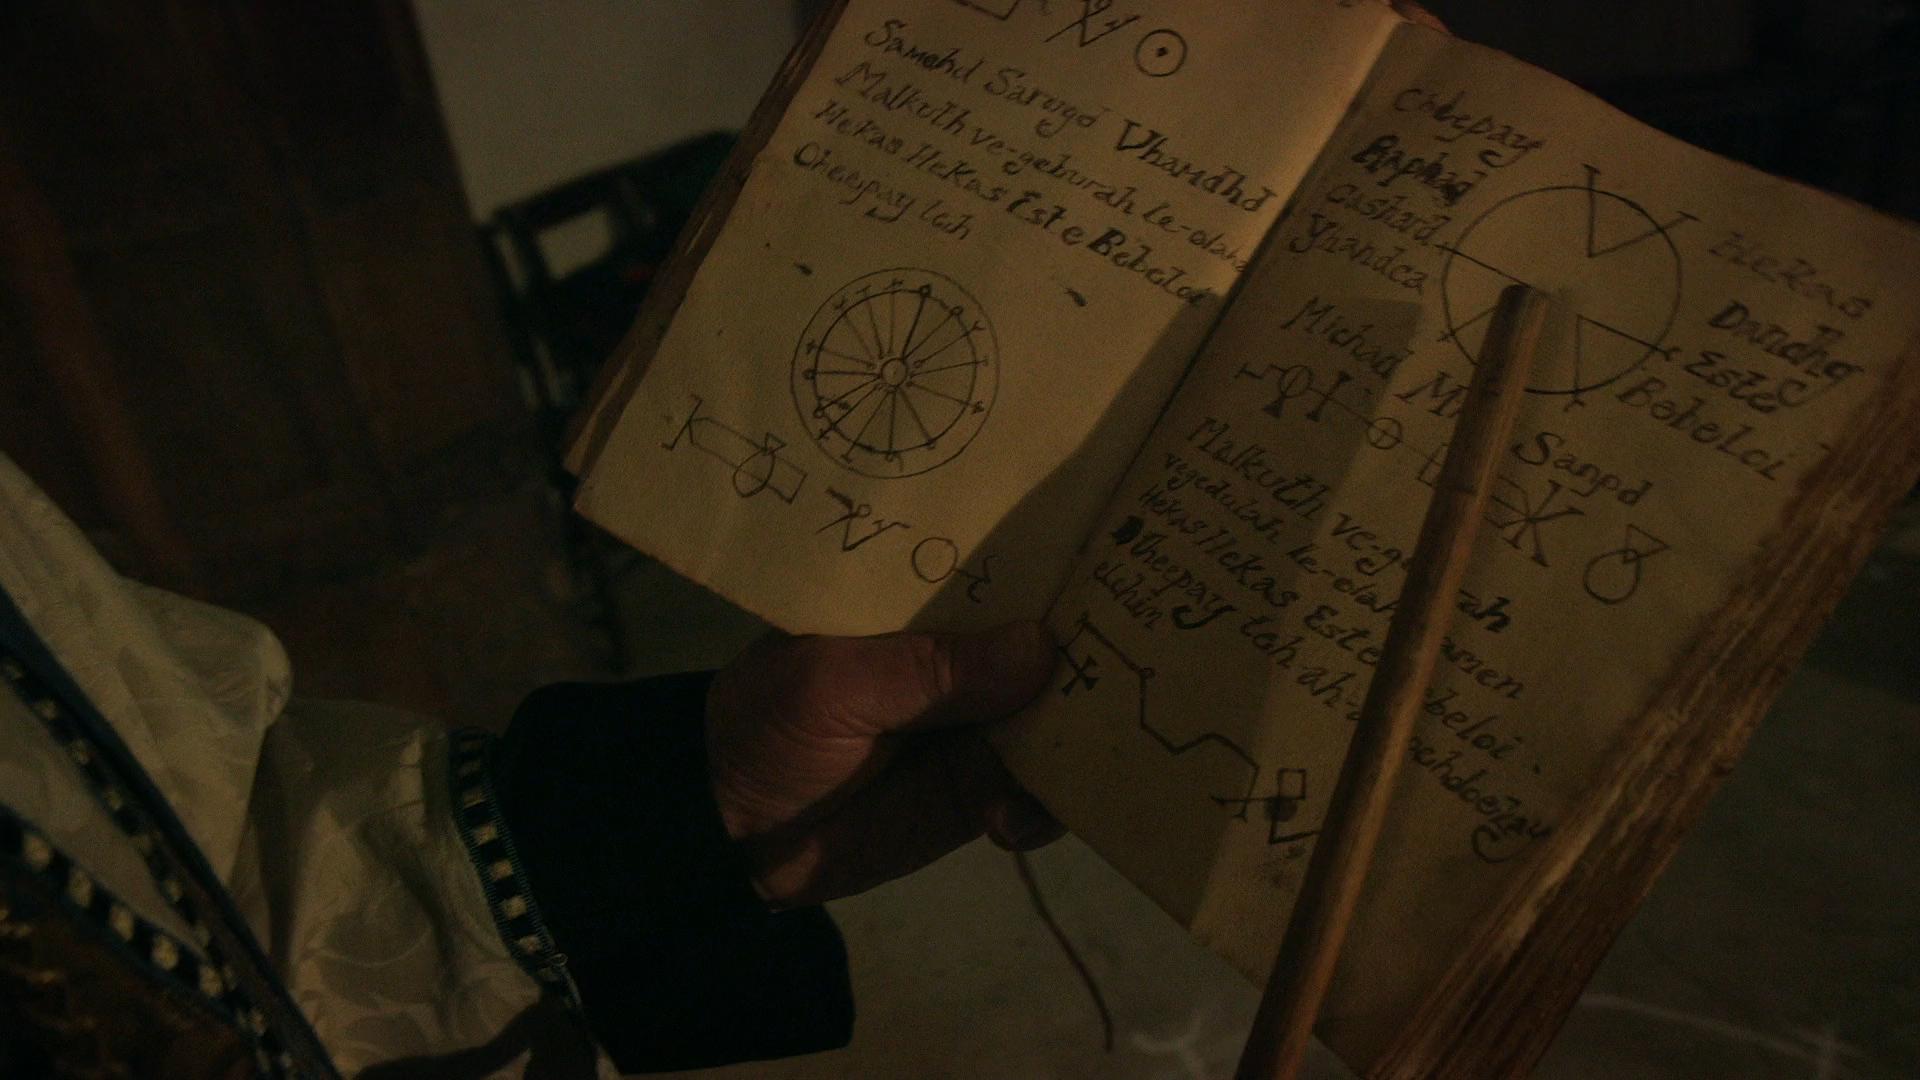 Samehd Sarugd Vhamdhd
Malkuth ve-geburah le-olahm
Hekas Hekas Este Bebeloi
Oheepay lah
Chdepay
Gashard
Yhandca
Hekas
Este
Bebeloi
Michad
Sanpd
Malkuth ve-ge rah
vegedulah le-olah amen
Hekas Hekas Este ebeloi.
Oheepay toh-ah-
eluhin